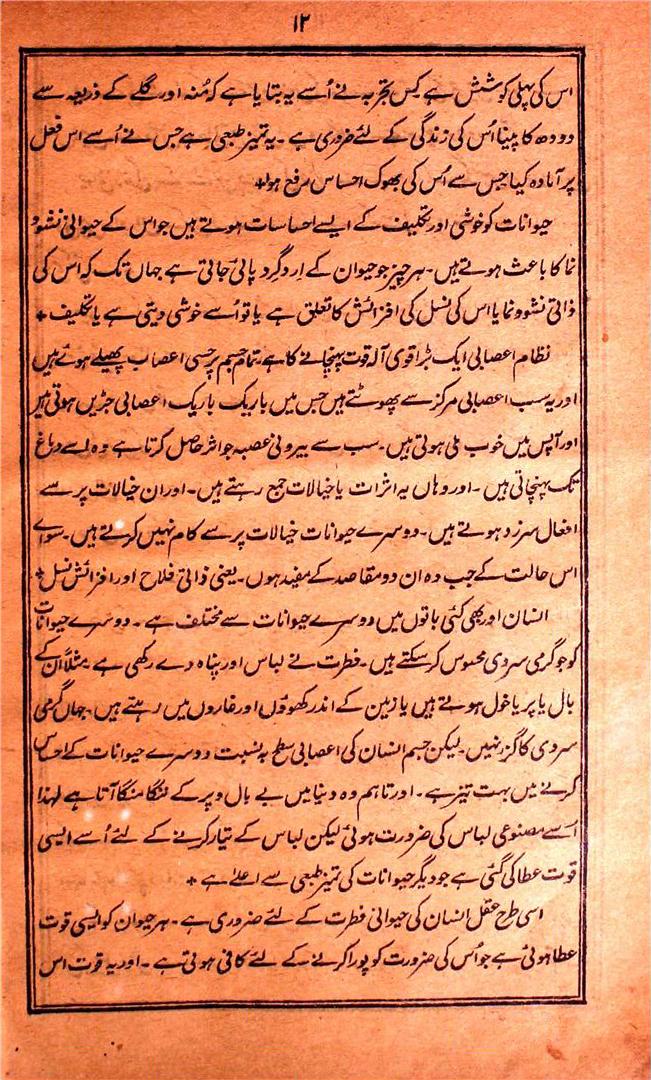 ۱۲
اس کی پہلی کوشش ہے کس تجربہ نے اُسے یہ بتایا ہے کہ مُنہ اور گلے کے ذریعہ سے
دودھ کا پینا اُس کی زندگی کے لئے ضروری ہے ۔ یہ تمیز طبعی ہے جس نے اُسے اس فعل
پر آمادہ کیا جس سے اُس کی بھوک احساس رفع ہوا +
حیوانات کو خوشی اور تکلیف کے ایسے احساسات ہوتے ہیں جو اس کے حیوانی نشوو
نما کا باعث ہوتے ہیں ۔ ہر چیز جو حیوان کے اِرد گرد پائی جاتی ہے جہاں تک کہ اس کی
ذاتی نشوونما یا اس کی نسل کی افزائش کا تعلق ہے یا تو اُسے خوشی دیتی ہے یا تکلیف +
نظام اعصابی ایک بڑا قوی آلہ قوت پہنچانے کا ہے ۔ تمام جسم پر حسی اعصاب پھیلے ہوئے ہیں
اور یہ سب اعصابی مرکز سے پھوٹتے ہیں جس میں باریک باریک اعصابی جڑیں ہوتی ہیں
اور آپس میں خوب ملی ہوتی ہیں ۔ سب سے بیرونی عصبہ جو اثر حاصل کرتا ہے وہ اسے دماغ
تک پہنچاتی ہیں ۔ اور وہاں یہ اثرات یا خیالات جمع رہتے ہیں ۔ اور ان خیالات پر سے
افعال سرزد ہوتے ہیں ۔ دوسرے حیوانات خیالات پر سے کام نہیں کرتے ہیں ۔ سوائے
اس حالت کے جب وہ ان دو مقاصد کے مفید ہوں ۔ یعنی ذاتی فلاح اور افزائش نسل +
انسان اور بھی کئی باتوں میں دوسرے حیوانات سے مختلف ہے ۔ دوسرے حیوانات
کو جو گرمی سردی محسوس کر سکتے ہیں ۔ فطرت نے لباس اور پناہ دے رکھی ہے ۔ مثلاً اُن کے
بال یا پر یا خول ہوتے ہیں یا زمین کے اندر کھوؤں اور غاروں میں رہتے ہیں ۔ جہاں گرمی
سردی کا گزر نہیں ۔ لیکن جسم انسان کی اعصابی سطح بہ نسبت دوسرے حیوانات کے احساس
کرنے میں بہت تیز ہے ۔ اور تاہم وہ دنیا میں بے بال و پر کے ننگا منگا آتا ہے لہٰذا
اُسے مصنوعی لباس کی ضرورت ہوئی لیکن لباس کے تیار کرنے کے لئے اُسے ایسی
قوت عطا کی گئی ہے جو دیگر حیوانات کی تمیز طبعی سے اعلےٰ ہے +
اسی طرح عقل انسان کی حیوانی فطرت کے لئے ضروری ہے ۔ ہر حیوان کو ایسی قوت
عطا ہوئی ہے جو اُس کی ضرورت کو پورا کرنے کے لئے کافی ہوتی ہے ۔ اور یہ قوت اس